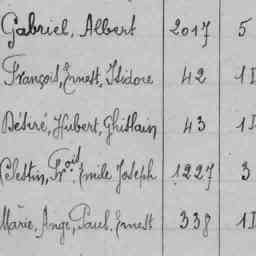 Gabriel, Albert 2017 5
François, Ernest, Isidore 42 1I
Désiré, Hubert, Ghislain 43 1I
Celestin, Frois Emile Joseph 1227 3
Marie, Ange, Paul, Ernest 338 1I